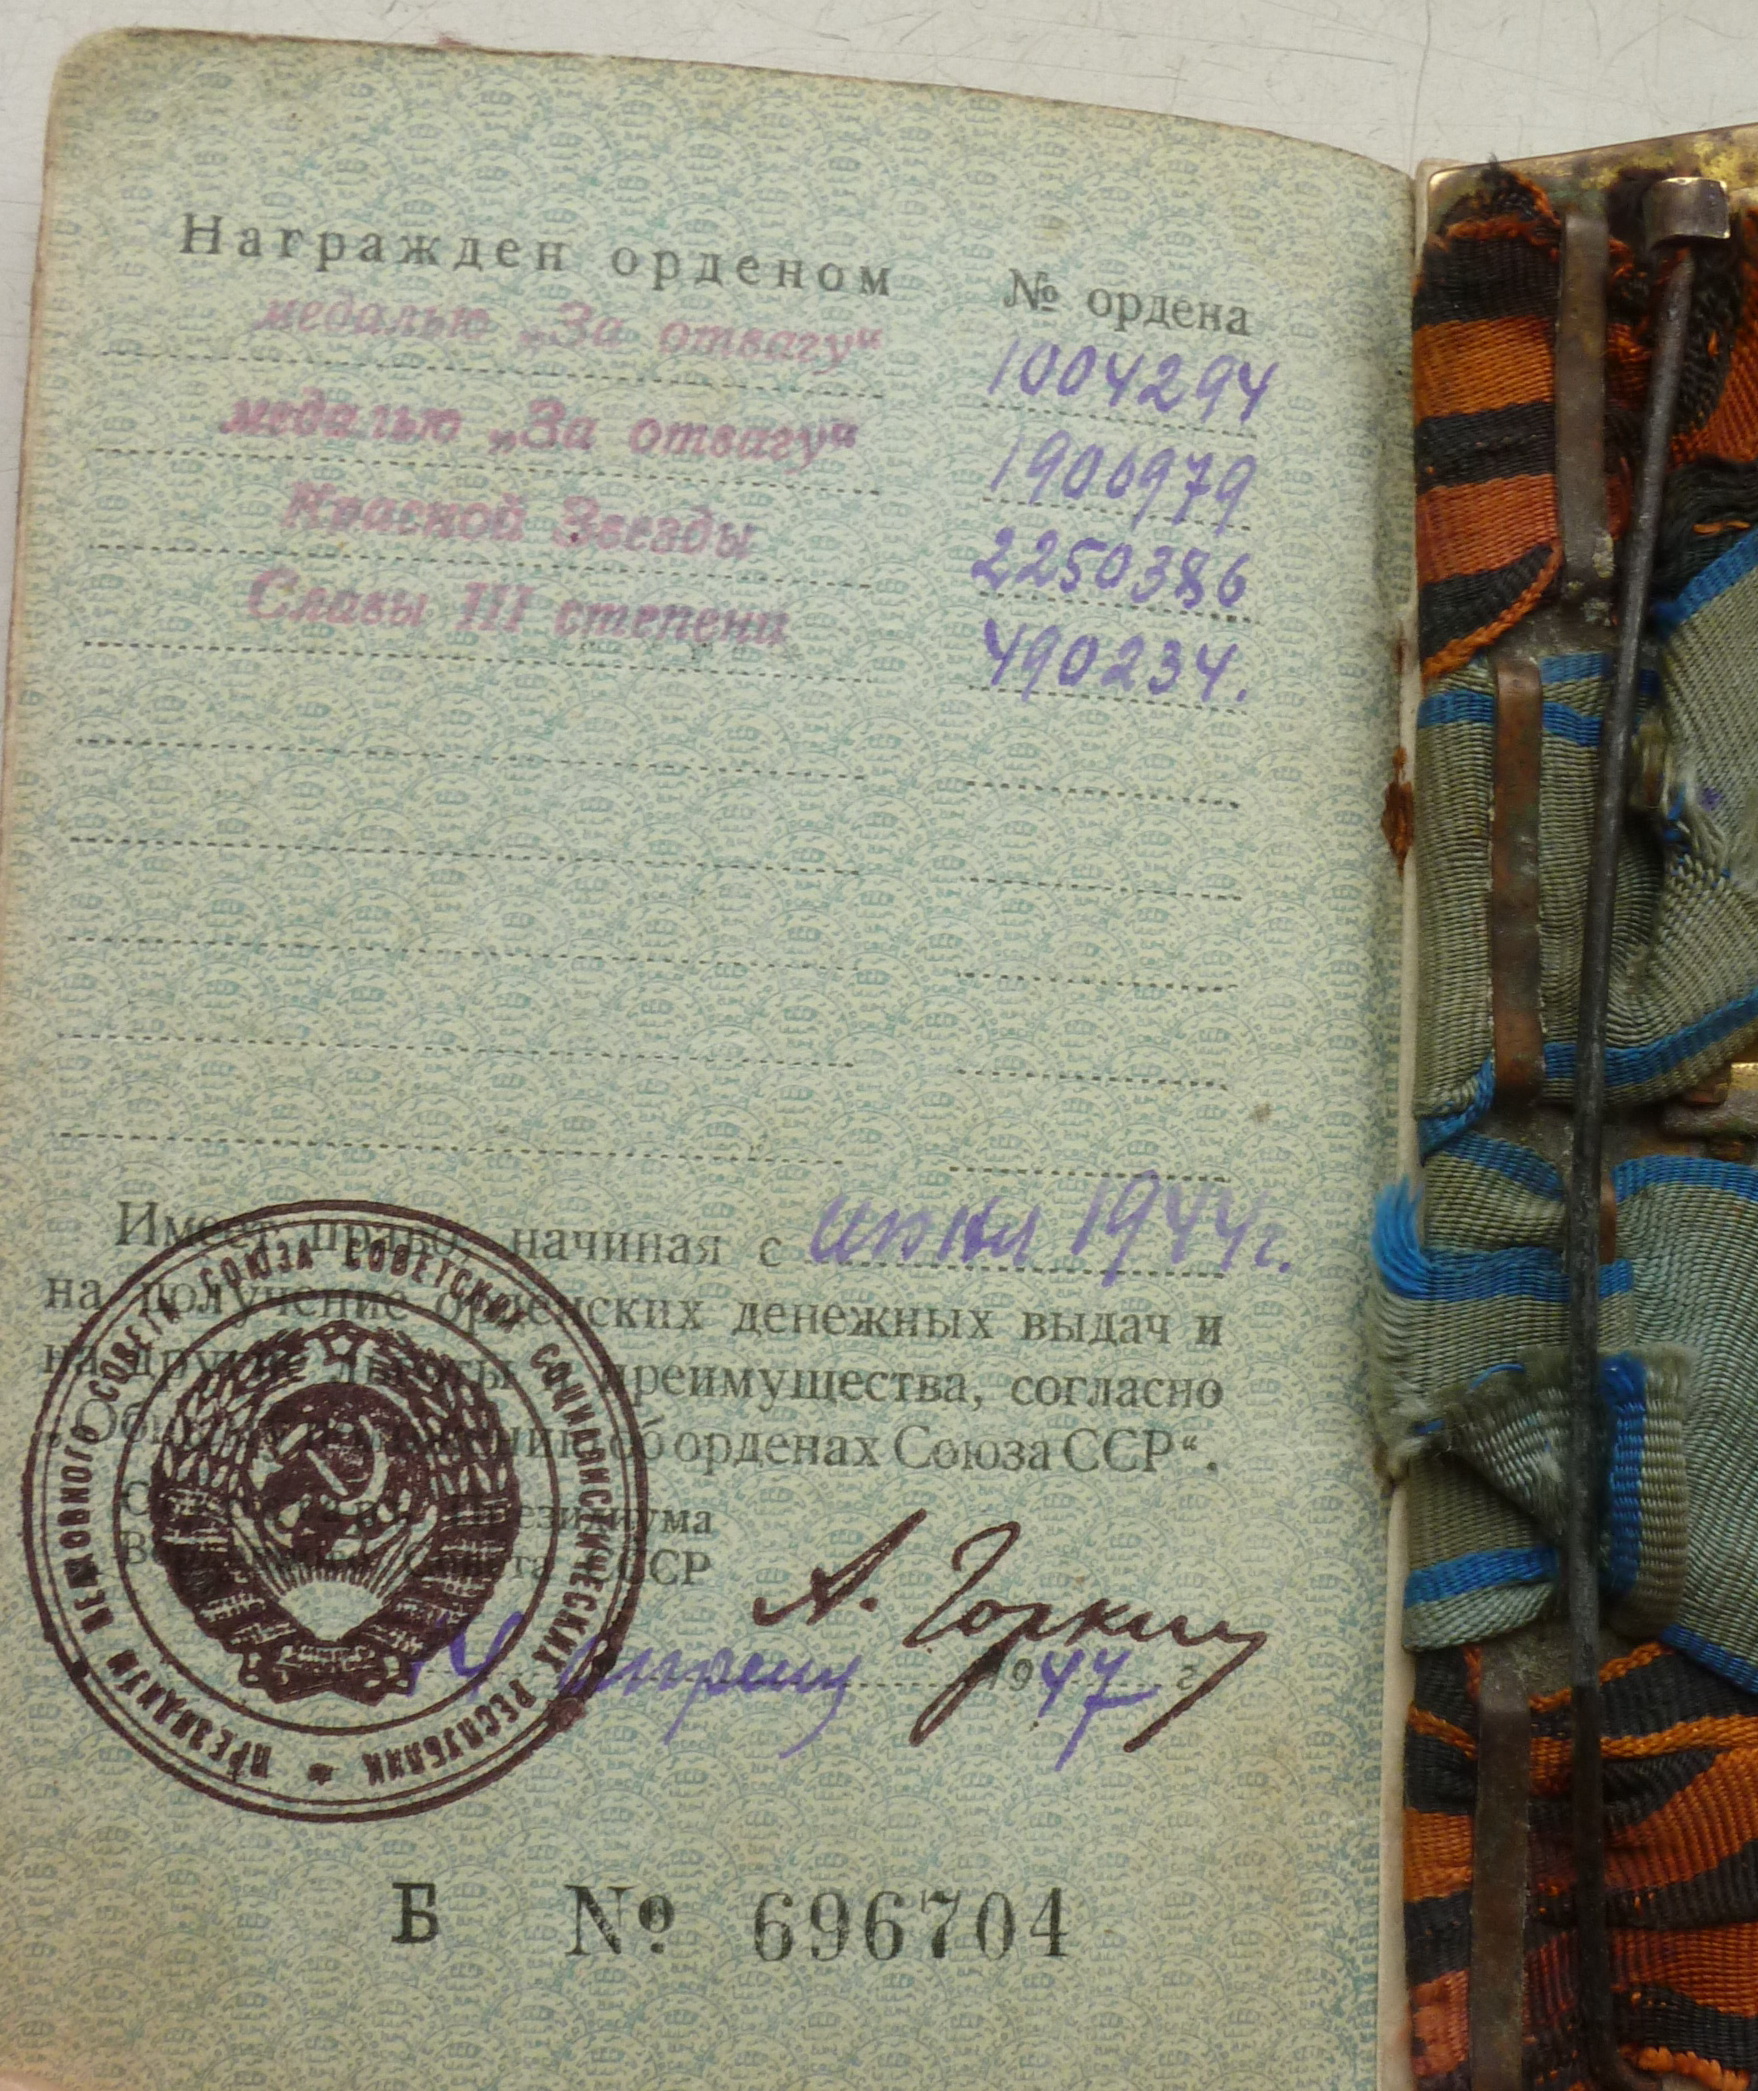 Награжден орденом № ордена
медалью „За отвагу“ 1004294
медалью „За отвагу“ 1906979
Красной Звезды 2250386
Славы III степени 490234.
Имеет право, начиная с июня 1944 г.
на получение орденских денежных выдач и
на другие льготы и преимущества, согласно
„Общему положению об орденах Союза ССР“.
Секретарь Президиума
Верховного Совета СССР
А. Горкин
апреля 1947 г.
ПРЕЗИДИУМ ВЕРХОВНОГО СОВЕТА СОЮЗА СОВЕТСКИХ СОЦИАЛИСТИЧЕСКИХ РЕСПУБЛИК
Б № 696704